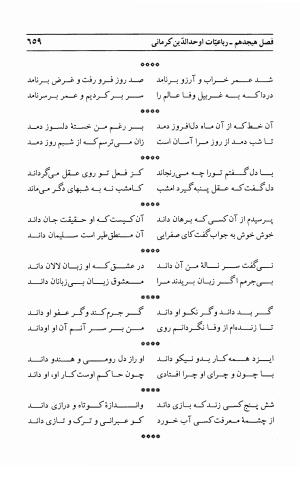 فصل هیجدهم ـ رباعیّات اوحدالدّین کرمانی ۶۵۹
****
شد عمر خراب و آرزو برنامد صد روز فرو رفت و غرض برنامد
دردا که به غربیل وفا عالم را سر بر کردیم و عمر بر سر نامد
****
آن خط که از آن ماه دل‌افروز دمد بر رغم من خستهٔ دلسوز دمد
تا شب دمد از روز مرا آسان است زان می‌ترسم که از شبم روز دمد
****
با دل گفتم تو را چه می‌رنجاند کز فعل تو روی عقل می‌گرداند
دل گفت که عقل پنبه گیرد امشب کامشب نه به شبهای دگر می‌ماند
****
پرسیدم از آن کسی که برهان داند آن کیست که او حقیقت جان داند
خوش خوش به جواب گفت کای صفرایی آن منطق‌طیر است سلیمان داند
****
نی گفت سر نالهٔ من آن داند در عشق که او زبان لالان داند
بی‌جرمم اگر زبان بریدند مرا معشوق زبان بی‌زبانان داند
****
گر بد داند وگر نکو او داند گر جرم کند وگر عفو او داند
تا زنده‌ام از وفا نگردانم روی من بر سر آنم آن او او داند
****
ایزد همه کار بد و نیکو داند او راز دل رومی و هندو داند
با چون و چرای او چرا افتادی چون حاکم اوست کار او، او داند
****
شش پنج کسی زند که بازی داند واندازهٔ کوتاه و درازی داند
از چشمهٔ معرفت کسی آب خورد کو عبرانی و ترک و تازی داند
****